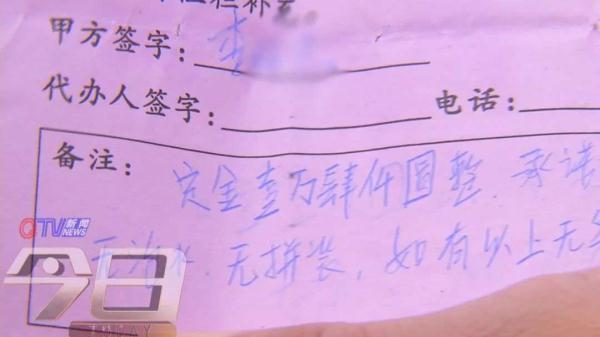 甲方签字：李
代办人签字：
电话：
备注：
定金壹万肆仟圆整 承诺
无泡水、无拼装，如有以上无
QTV新闻
NEWS
今日
TODAY